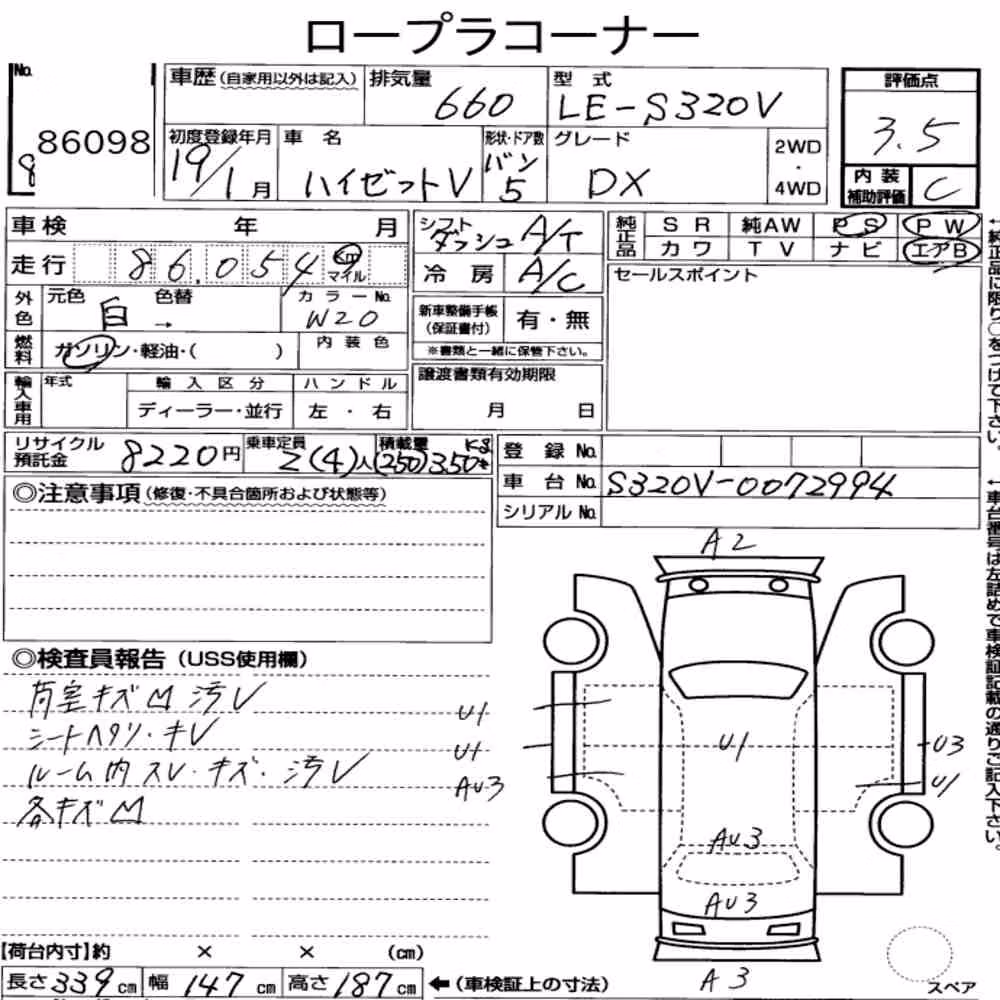 ロープラコーナー
No. 86098
8
車歴(自家用以外は記入)
排気量 660
型式 LE-S320V
評価点 3.5
初度登録年月 19/1月
車名 ハイゼットV
形状・ドア数 バン 5
グレード DX
2WD・4WD
内装補助評価 C
車検 年 月
走行 86,054 km マイル
外色 元色 白 → 色替
カラーNo. W20
燃料 ガソリン・軽油・( )
内装色
輸入車用 年式
輸入区分 ディーラー・並行
ハンドル 左・右
シフト ダッシュ A/T
冷房 A/C
新車整備手帳(保証書付) 有・無
※書類と一緒に保管下さい。
譲渡書類有効期限
月 日
純正品 SR 純AW PS PW
カワ TV ナビ エアB
セールスポイント
←純正品に限り○をつけて下さい。
リサイクル預託金 8220円
乗車定員 2(4)人
積載量 (250)350 kg
登録No.
車台No. S320V-0072994
シリアルNo.
←車台番号は左詰めで車検証記載の通りご記入下さい。
◎注意事項(修復・不具合箇所および状態等)
◎検査員報告(USS使用欄)
荷室キズ凹汚レ
シートヘタリ・キレ
ルーム内スレ・キズ・汚レ
各キズ凹
A2
U1
U1
AU3
U1
U3
U1
AU3
AU3
A3
【荷台内寸】約 × × (cm)
長さ339cm 幅147cm 高さ187cm ←(車検証上の寸法)
スペア